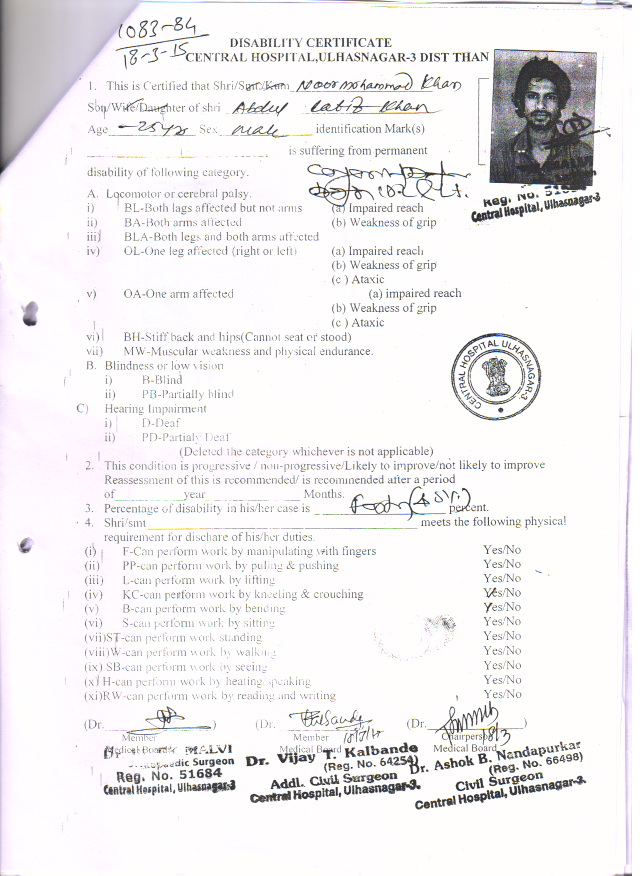 1083-84
18-3-15
DISABILITY CERTIFICATE
CENTRAL HOSPITAL,ULHASNAGAR-3 DIST THAN
1. This is Certified that Shri/Smt/Kum Noor mohammad Khan
Son/Wife/Daughter of shri Abdul Latif Khan
Age 25 yr Sex male identification Mark(s)
is suffering from permanent
disability of following category.
Reg. No. 51684
Central Hospital, Ulhasnagar-3
A. Locomotor or cerebral palsy.
i) BL-Both lags affected but not arms (a) Impaired reach
ii) BA-Both arms affected (b) Weakness of grip
iii) BLA-Both legs and both arms affected
iv) OL-One leg affected (right or left) (a) Impaired reach
(b) Weakness of grip
(c ) Ataxic
v) OA-One arm affected (a) impaired reach
(b) Weakness of grip
(c ) Ataxic
vi) BH-Stiff back and hips(Cannot seat or stood)
vii) MW-Muscular weakness and physical endurance.
B. Blindness or low vision
i) B-Blind
ii) PB-Partially blind
C) Hearing Impairment
i) D-Deaf
ii) PD-Partialy Deaf
(Deleted the category whichever is not applicable)
CENTRAL HOSPITAL ULHASNAGAR-3
2. This condition is progressive / non-progressive/Likely to improve/not likely to improve
Reassessment of this is recommended/ is recommended after a period
of year Months.
3. Percentage of disability in his/her case is percent.
4. Shri/smt meets the following physical
requirement for dischare of his/her duties.
(i) F-Can perform work by manipulating with fingers Yes/No
(ii) PP-can perform work by puling & pushing Yes/No
(iii) L-can perform work by lifting Yes/No
(iv) KC-can perform work by kneeling & crouching Yes/No
(v) B-can perform work by bending Yes/No
(vi) S-can perform work by sitting Yes/No
(vii)ST-can perform work standing Yes/No
(viii)W-can perform work by walking Yes/No
(ix) SB-can perform work by seeing Yes/No
(x) H-can perform work by heating/speaking Yes/No
(xi)RW-can perform work by reading and writing Yes/No
(Dr. ) (Dr. ) (Dr. )
Member Member Chairperson
Medical Board Medical Board Medical Board
Dr. MALVI
Surgeon
Reg. No. 51684
Central Hospital, Ulhasnagar-3
Dr. Vijay T. Kalbande
(Reg. No. 64254)
Addl. Civil Surgeon
Central Hospital, Ulhasnagar-3.
Dr. Ashok B. Nandapurkar
(Reg. No. 66498)
Civil Surgeon
Central Hospital, Ulhasnagar-3.